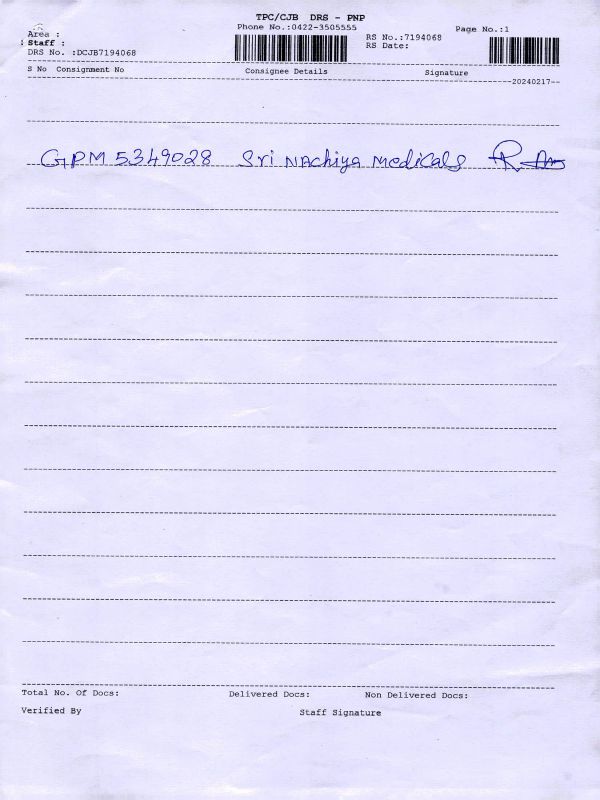 TPC/CJB DRS - PNP
Phone No.:0422-3505555
Page No.:1
Area :
RS No.:7194068
Staff :
RS Date:
DRS No. :DCJB7194068
S No Consignment No Consignee Details Signature
20240217
GPM 5349028 Sri NAchiya Medicals
Total No. Of Docs: Delivered Docs: Non Delivered Docs:
Verified By Staff Signature